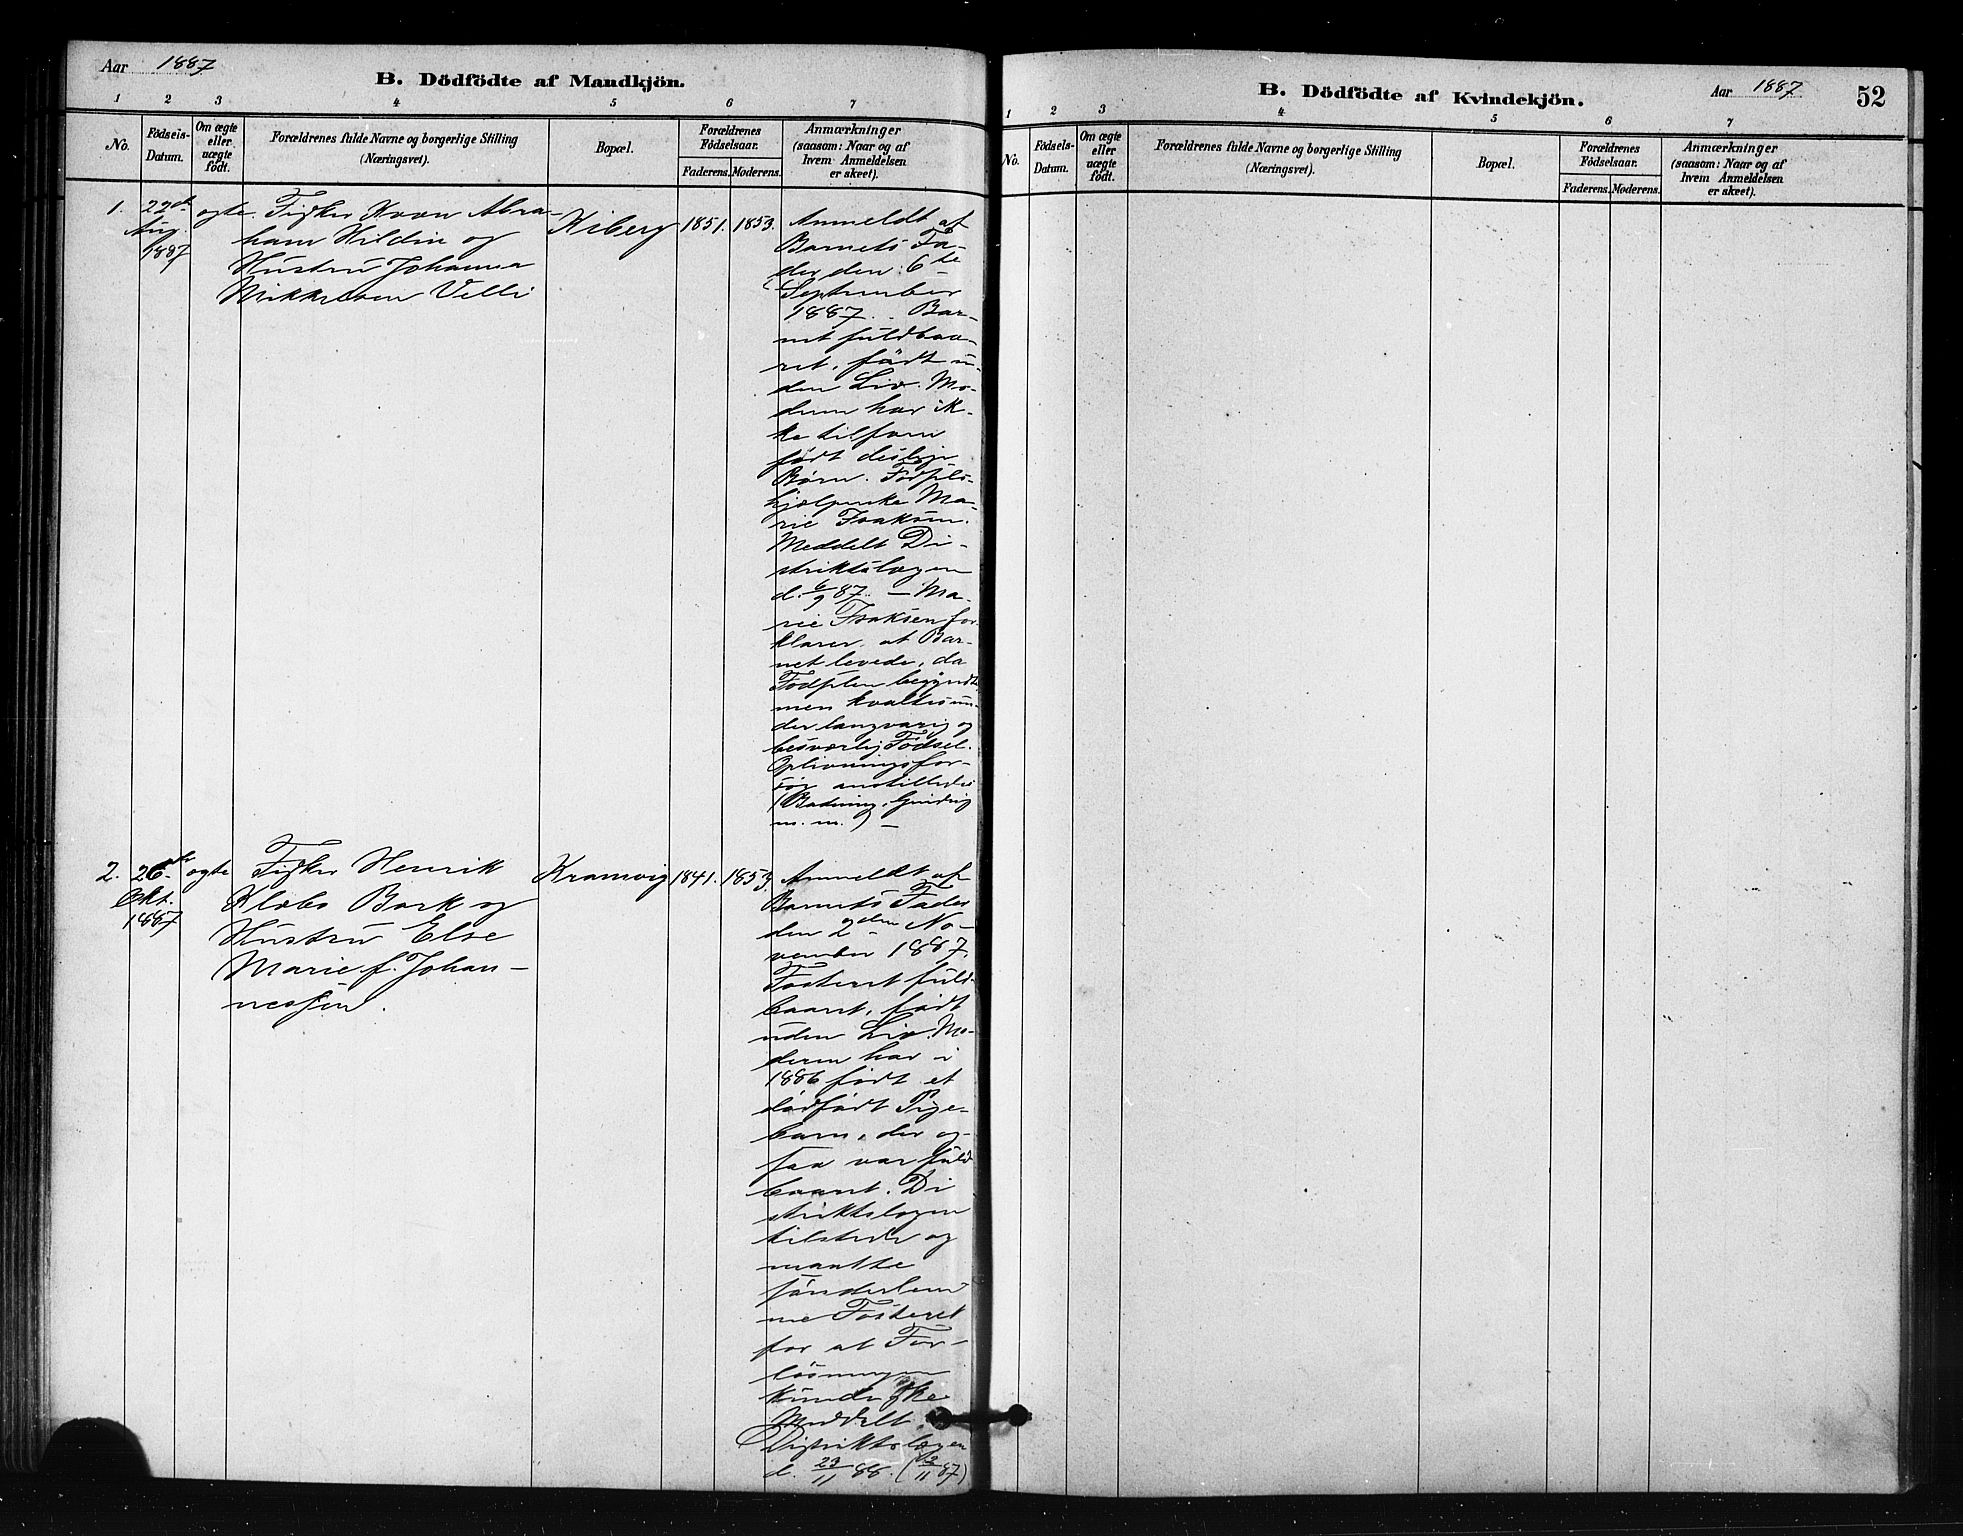 Aar 1887
B. Dödfödte af Mandkjön.
1 2 3 4 5 6 7
No.
Födsels-
Datum.
Om ægte
eller
uægte
födt.
Forældrenes fulde Navne og borgerlige Stilling
(Næringsvei).
Bopæl.
Forældrenes
Födselsaar.
Faderens. Moderens.
Anmærkninger
(saasom: Naar og af
hvem Anmeldelsen
er skeet).
1.
22de
Aug.
1887
ægte
Fisker Kvæn Abra-
ham Hildin og
Hustru Johanna
Mikkelsen Velli
Kiberg
1851.
1853.
Anmeldt af
Barnets Fa-
der den 6te
September
1887. Bar-
net fuldbaa-
ret, födt u-
den Liv. Mo-
deren har ik-
ke tilforn
födt deslige
Börn. Födsels-
hjælperske Ma-
rie Isaksen.
Meddelt Di-
striktslægen
d. 6/9 87. — Ma-
rie Isaksen for-
klarer, at Bar-
net levede, da
Fødselen begyndte
men kvaltes un-
der langvarig og
besværlig Födsel.
Oplivningsfor-
søg anstilledes
(Badning, Gnidning
m. m.) —
2.
26de
Okt.
1887
ægte
Fisker Henrik
Klæbo Bark og
Hustru Else
Marie f. Johan-
nessen.
Kramvig
1841.
1853.
Anmeldt af
Barnets Fader
den 2den No-
vember 1887.
Fosteret fuld-
baaret, födt
uden Liv. Mo-
deren har i
1886 födt et
dödfödt Pige-
barn, der og-
saa var fuld
baaret. Di
striktslægen
tilstede og
maatte
sönderlem
me Fosteret
for at For-
lösningen
kunde ske
Meddelt
Distriktslægen
d. 23/11 88. (12/11 87)
B. Dödfödte af Kvindekjön.
Aar 1887
52
1 2 3 4 5 6 7
No.
Födsels-
Datum.
Om ægte
eller
uægte
födt.
Forældrenes fulde Navne og borgerlige Stilling
(Næringsvei).
Bopæl.
Forældrenes
Födselsaar.
Faderens. Moderens.
Anmærkninger
(saasom: Naar og af
hvem Anmeldelsen
er skeet).